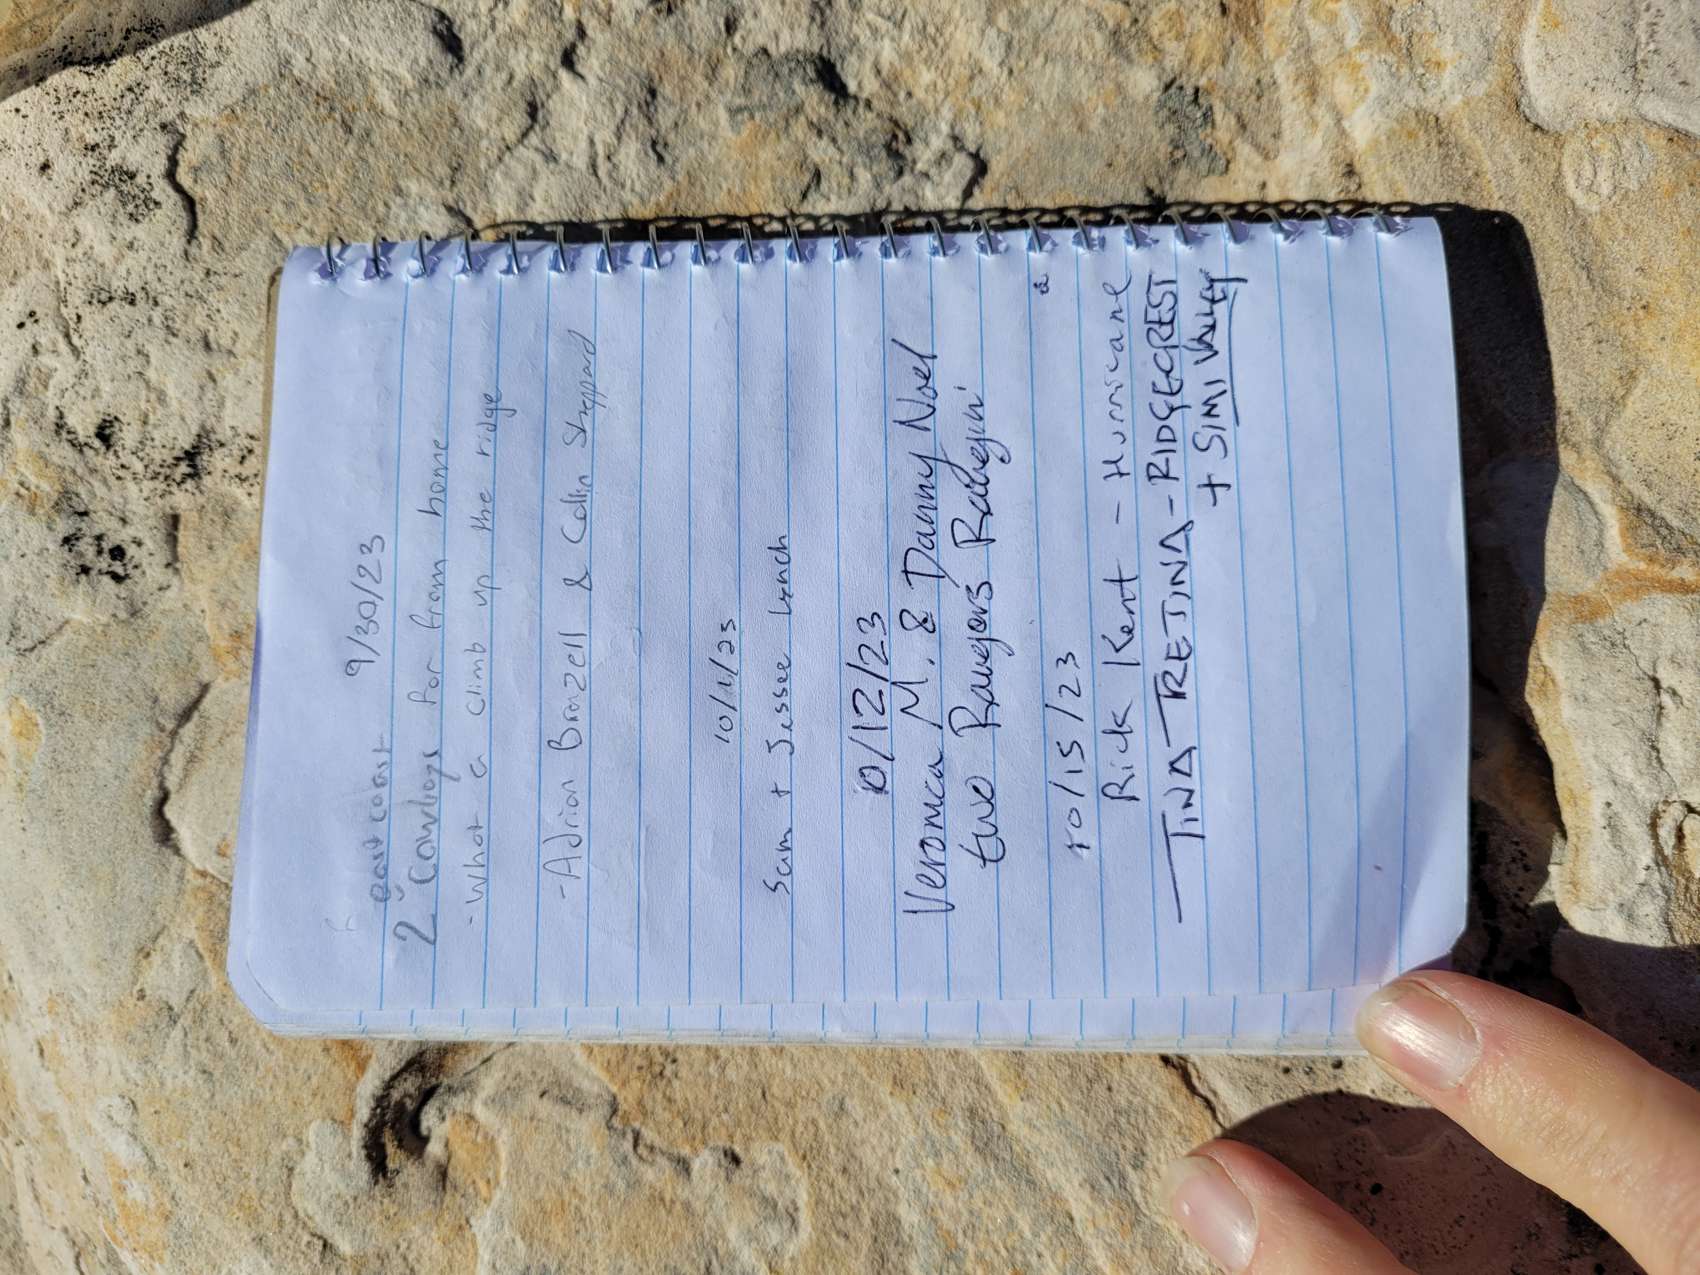 9/30/23
east coast
2 Cowboys far from home
- What a climb up the ridge
- Adrian Brazell & Collin Sheppard
10/11/23
Sam + Jessee Lynch
10/12/23
Veronica M. & Danny Noel
two Rangers Rangin'
10/15/23
Rick Kent - Hurricane
TINA TRETINA - RIDGECREST
+ SIMI VALLEY